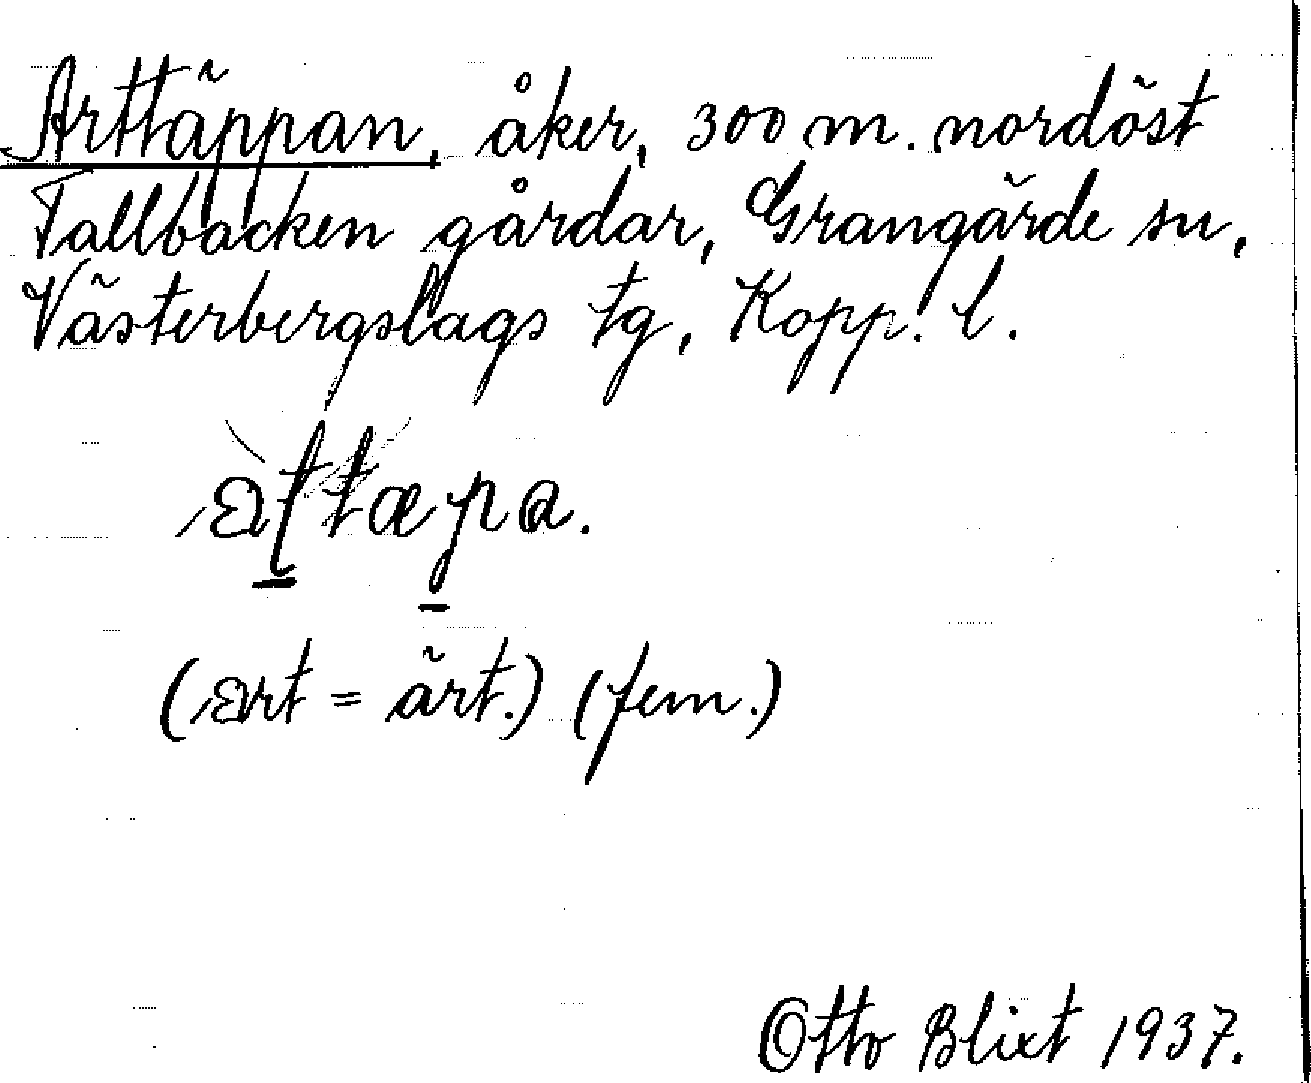 Arttäppan, åker, 300 m. nordöst
Tallbacken gårdar, Grangärde sn,
Västerbergslags tg, Kopp. l.
(art = ärt.) (fem.)
Otto Blixt 1937.